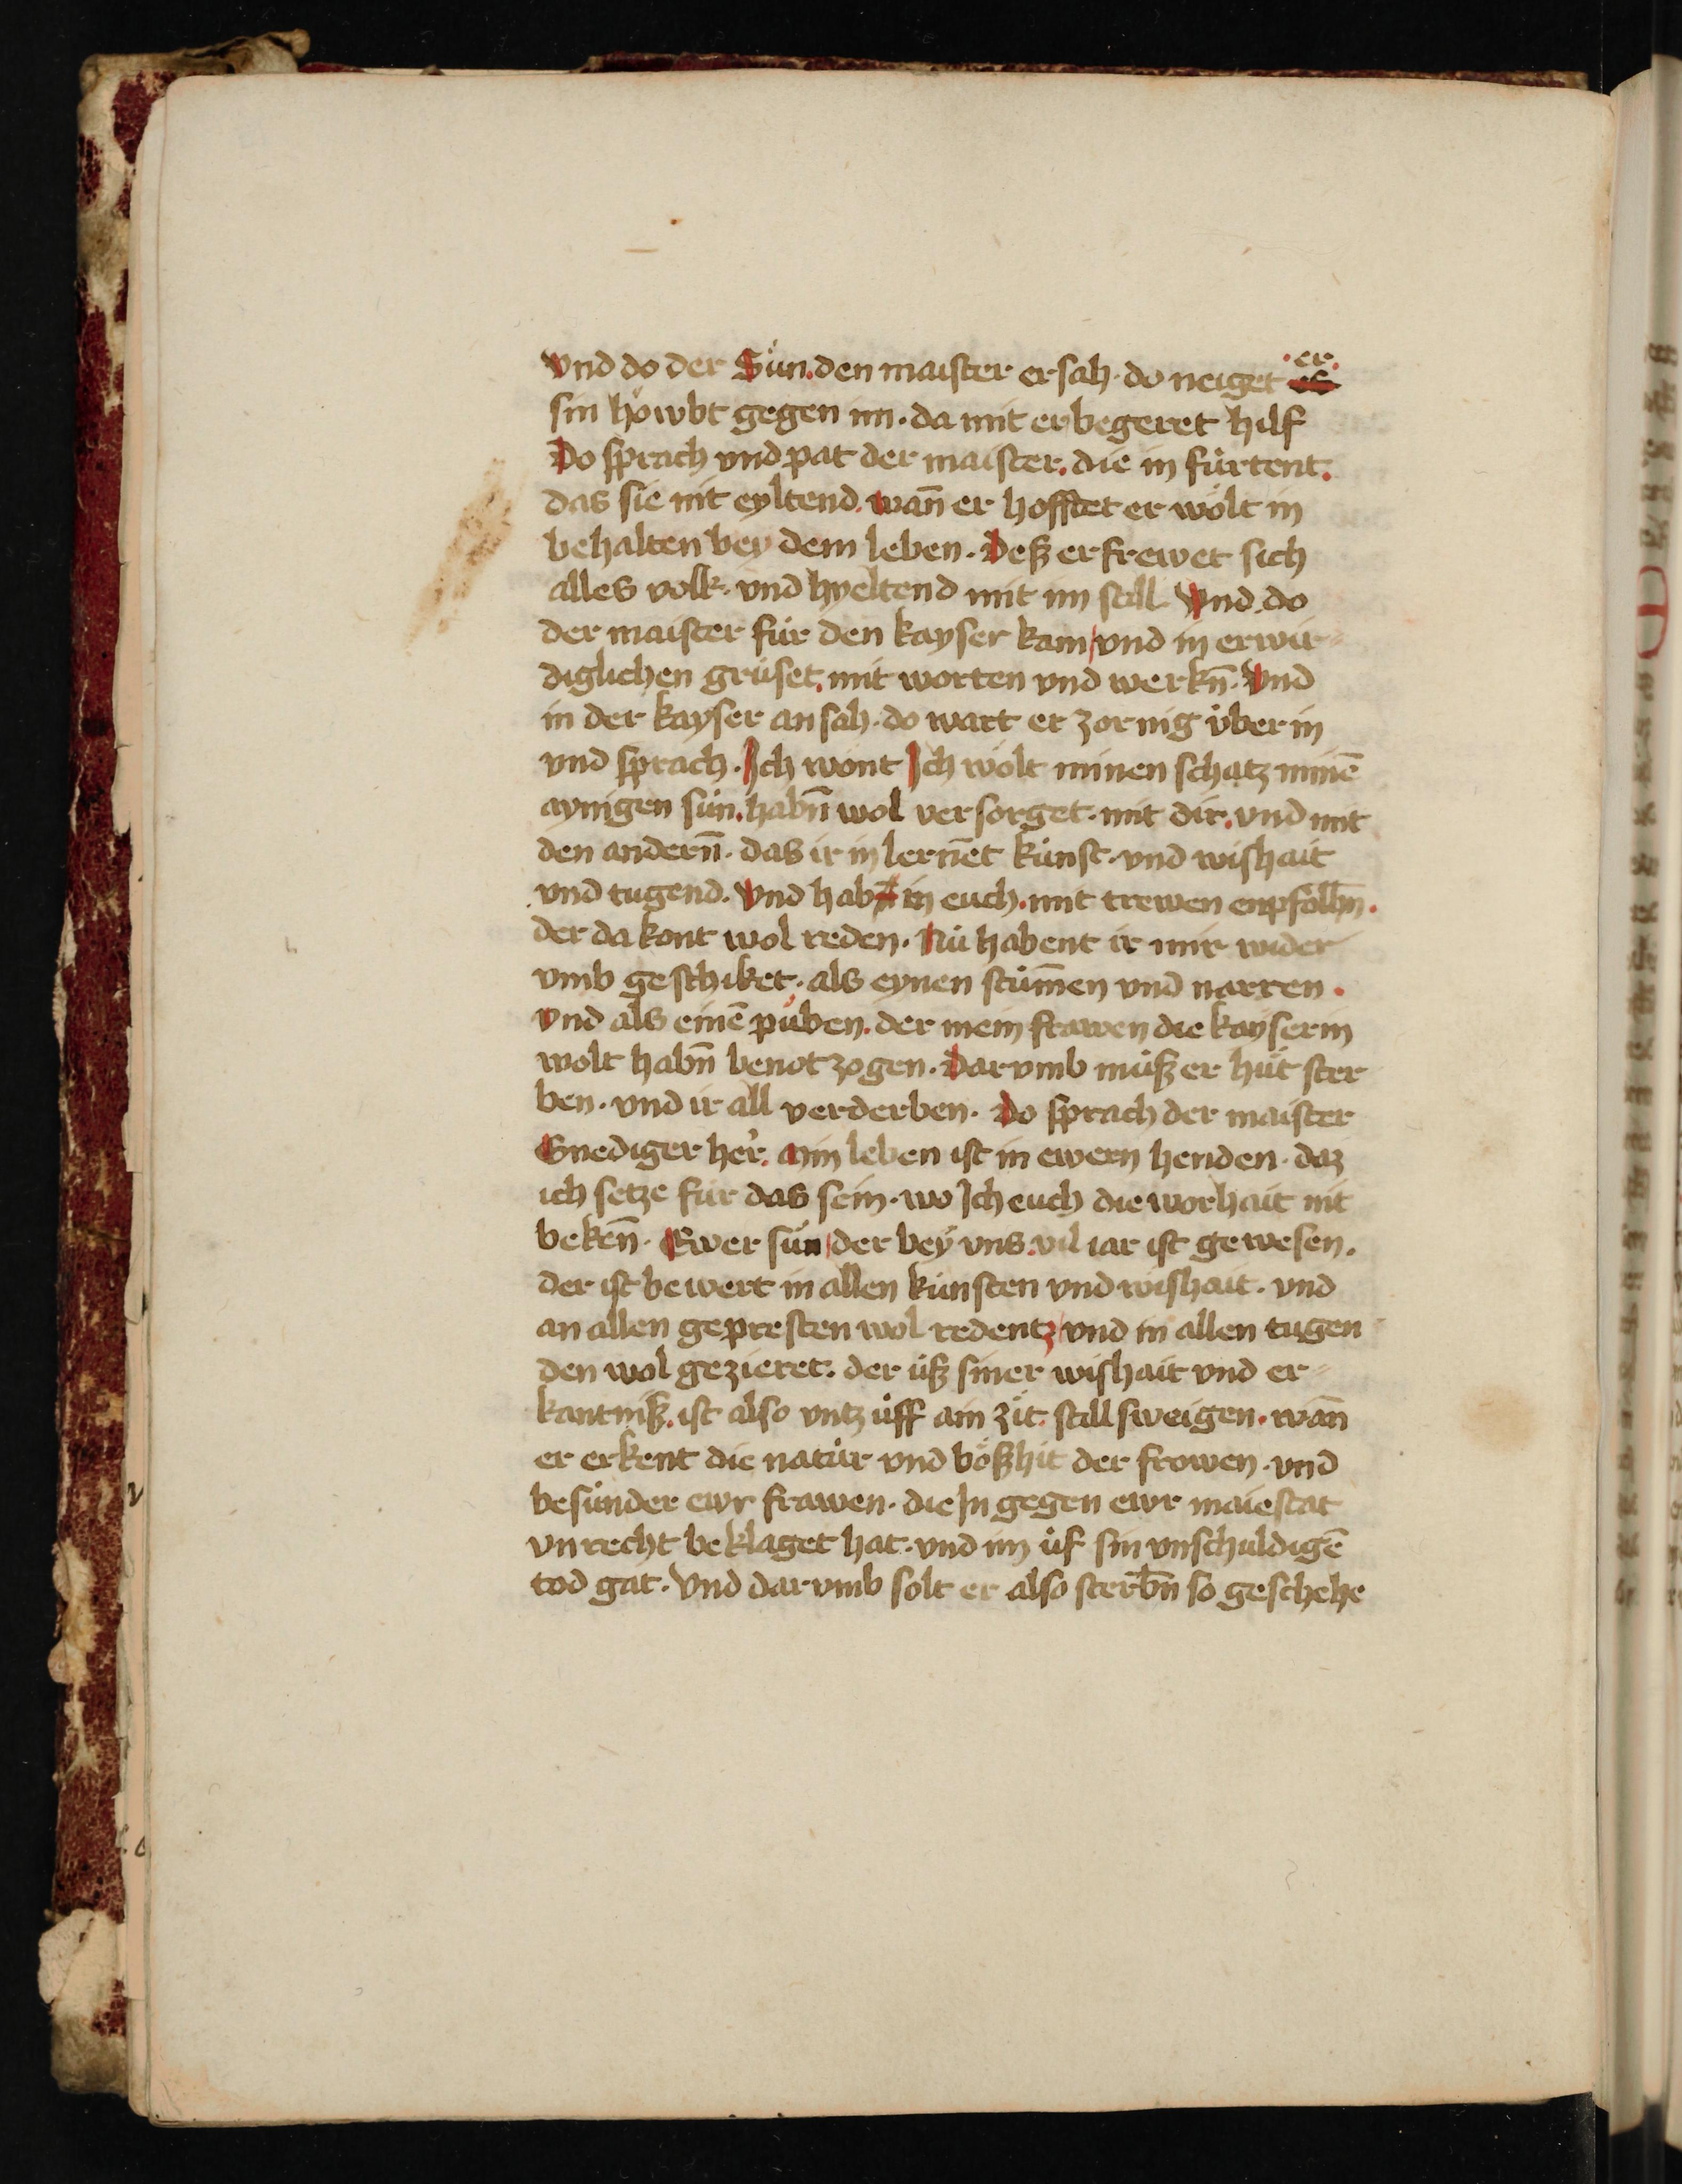 vnd do der Sün. den maister ersah· do neiget ·er·
sin höwbt gegen im· da mit er begeret hilf
Do sprach vnd pat der maister. die in fürtent.
das sie nit eyltend. wan̄ er hofftet er wölt in
behalten bey dem leben· Deß erfrewet sich
alles volk· vnd hyeltend mit im still Vnd do
der maister für den kayser kam / vnd in erwir⸗
diglichen grüset. mit worten vnd werkn̄· Vnd
in der kayser ansah· do wart er zornig über in
vnd sprach· Ich wönt Ich wölt minen schatz minē
aynigen sün. habn̄ wol versorget· mit dir. vnd mit
den andern̄· das ir in lernēt künst· vnd wishait
vnd tugend. Vnd hab in euch. mit trewen enpfolhn̄.
der da kont wol reden· Nü habent ir mir wider
vmb geschiket· als eynen stum̄en vnd narren·
vnd als einē puben. der mein frawen die kayserin
wolt habn̄ benotzogen· Darvmb müß er hüt ster
ben· vnd ir all verderben· Do sprach der maister
Gnediger her. Min leben ist in ewern henden· daz
ich setze für das sein· wo Ich euch die worhait nit
bekeñ· Ewer sün / der bey vns. vil iar ist gewesen.
der ist bewert in allen künsten vnd wishait· vnd
an allen gepresten wol redentz / vnd in allen tugen
den wol gezieret. der üß siner wishait vnd er⸗
kantniß. ist also vntz üff ain zit. still sweigen. wan̄
er erkent die natür vnd bößhit der frowen· vnd
besünder ewr frawen· die In gegen ewr maiestat
vnrecht beklaget hat· vnd im üf sin vnschuldigē
tod gat· Vnd darvmb solt er also sterbn̄ so geschehe